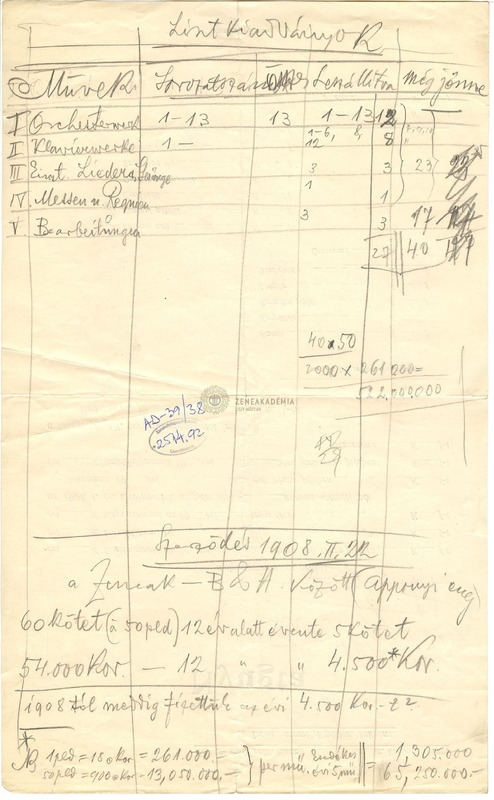 Liszt kiadványok
Művek Sorozatszám Leszállítva még jönne
I Orchesterwerk 1-13 13 1-13 12
II Klavierwerke 1- 1-6, 8, 12 8
III Einst. Lieder u. 3 3 23
IV. Messen u. 1 1
V. Bearbeitungen 3 3 17
27 40
40 x 50
2000 x 261.000=
522,000,000
ZENEAKADÉMIA
LISZT MÚZEUM
AD-39/38
2514.92
Szerződés 1908. II. 22
a Zeneak - B & H. között (Apponyi
60 kötet (à 50 pld) 12 év alatt évente 5 kötet
54.000 Kor. - 12 " " 4.500* Kor.
1908 tól meddig fizettük az évi 4.500 Kor.-t?
*
NB 1 pld = 180 Kor = 261.000.- per mű. = 1,305.000
50 pld = 9000 Kor - 13,050.000.- évi 5 mű = 65,250.000.-